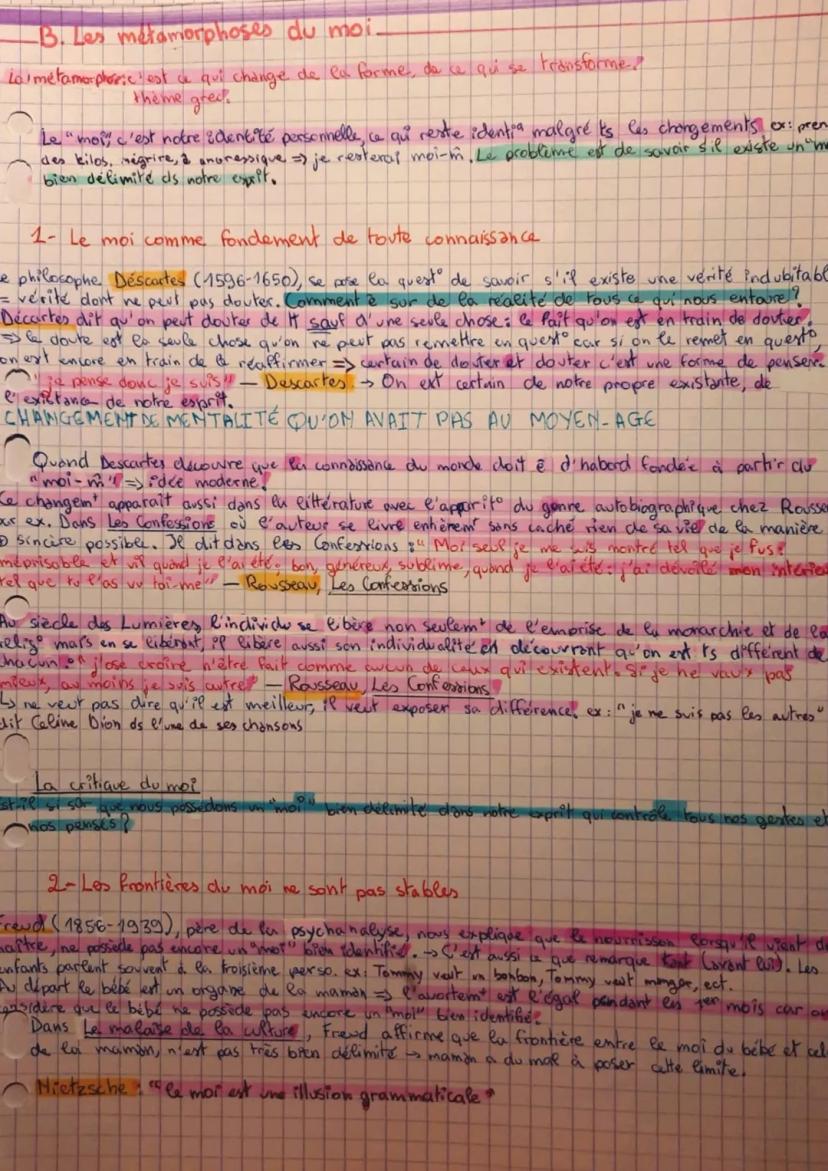 B. Les métamorphoses du moi
La métamorphose c'est ce qui change de la forme, de ce qui se transforme.
thème grec.
Le "moi" c'est notre identité personnelle, ce qui reste identiq malgré ts les changements ex: pren
des kilos, maigrire, ê anorexsique => je resterai moi-m̂. Le problème est de savoir s'il existe un "m
bien délimité ds notre esprit.
1- Le moi comme fondement de toute connaissance
e philosophe Déscartes (1596-1650), se pose la quest° de savoir s'il existe une vérité indubitabl
= vérité dont ne peut pas douter. Comment ê sur de la réalité de tous ce qui nous entoure?
Déscartes dit qu'on peut douter de tt sauf d'une seule chose: le fait qu'on est en train de douter.
=> le doute est la seule chose qu'on ne peut pas remettre en quest° car si on le remet en quest°,
on est encore en train de la réaffirmer => certain de douter et douter c'est une forme de penser.
"je pense donc je suis" — Descartes. → On est certain de notre propre existante, de
l'existance de notre esprit.
CHANGEMENT DE MENTALITÉ QU'ON AVAIT PAS AU MOYEN-AGE
Quand Descartes découvre que la connaissance du monde doit ê d'habord fondée à partir du
"moi-m̂" => idée moderne.
Ce changemt apparaît aussi dans la littérature avec l'apparit° du genre autobiographique chez Rousse
par ex. Dans Les Confessions où l'auteur se livre entièremt sans caché rien de sa vie de la manière
sincère possible. Il dit dans les Confessions: "Moi seul je me suis montré tel que je fus:
méprisable et vil quand je l'ai été: bon, généreux, sublime, quand je l'ai été: j'ai dévoilé mon intérieu
tel que tu l'as vu toi-même" — Rousseau, Les Confessions
Au siècle des Lumières, l'individu se libère non seulemt de l'emprise de la monarchie et de la
relig° mais en se libérant, il libère aussi son individualité en découvrant qu'on est ts différent de
chacun: "j'ose croire n'être fait comme aucun de ceux qui existent. Si je ne vaux pas
mieux, au moins je suis autre" — Rousseau, Les Confessions
↳ ne veut pas dire qu'il est meilleur, il veut exposer sa différence. ex: "je ne suis pas les autres"
dit Celine Dion ds l'une de ses chansons
La critique du moi
st-il si sûr que nous possédons un "moi" bien délimité dans notre esprit qui contrôle tous nos gestes et
nos pensés?
2- Les frontières du moi ne sont pas stables
Freud (1856-1939), père de la psychanalyse, nous explique que le nourrisson lorsqu'il vient de
naître, ne possède pas encore un "moi" bien identifié. → C'est aussi ce que remarque Kant (avant lui). Les
enfants parlent souvent à la troisième perso. ex: Tommy veut un bonbon, Tommy veut manger, ect.
Au départ le bébé est un organe de la maman => l'avortemt est l'égal pendant les 1er mois car on
considère que le bébé ne possède pas encore un "moi" bien identifié.
Dans Le malaise de la culture, Freud affirme que la frontière entre le moi du bébé et cel
de la maman, n'est pas très bien délimité → maman a du mal à poser cette limite.
Nietzsche: "le moi est une illusion grammaticale"